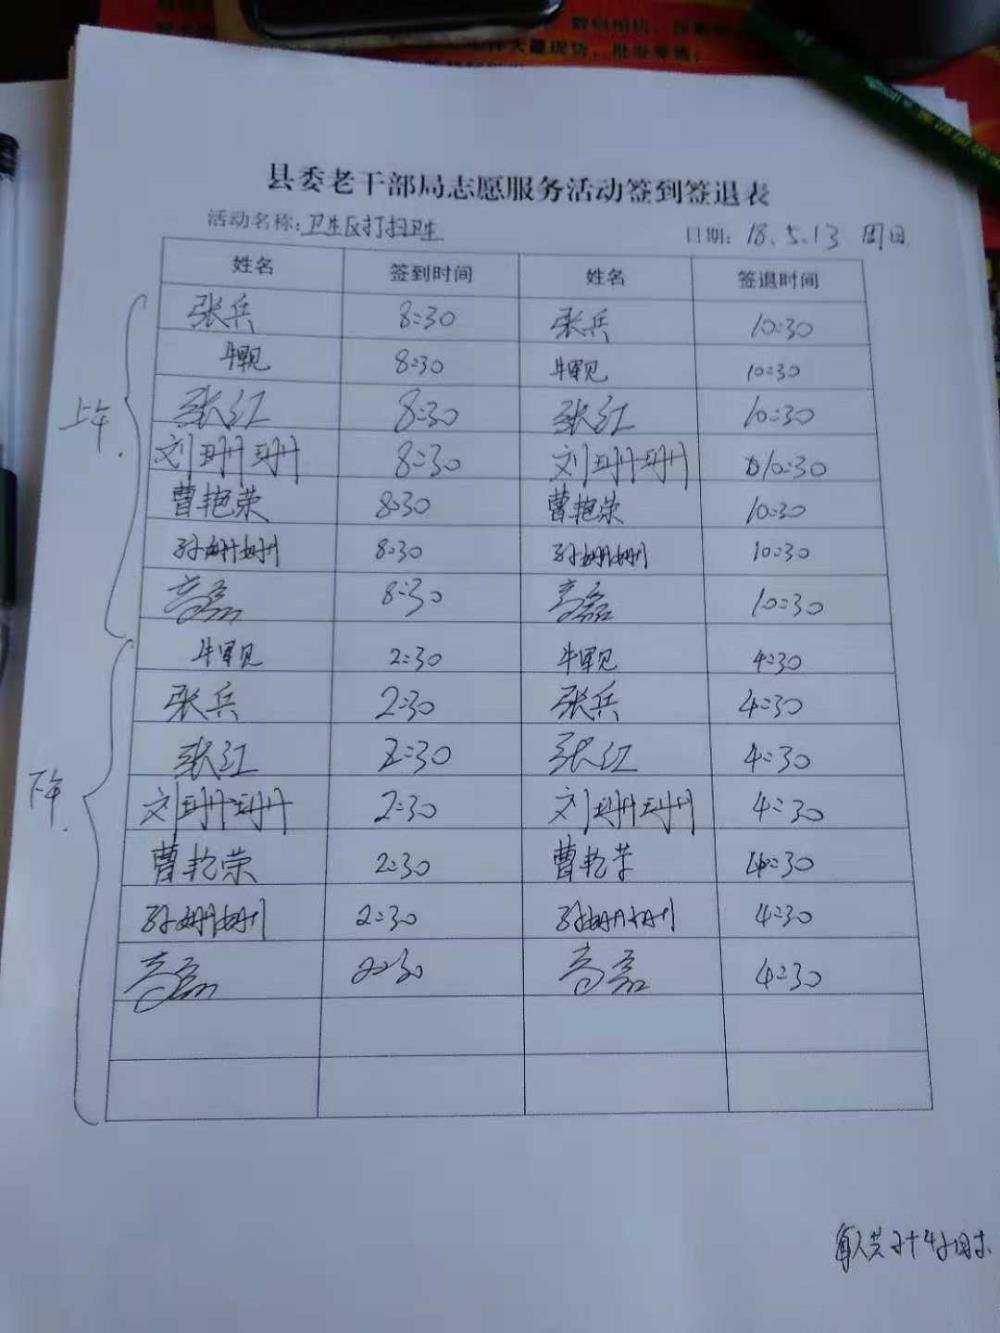 县委老干部局志愿服务活动签到签退表
活动名称:卫生区打扫卫生 日期: 18.5.13 周日
姓名 签到时间 姓名 签退时间
上午
张兵 8:30 张兵 10:30
牛罕见 8:30 牛罕见 10:30
张红 8:30 张红 10:30
刘珊珊 8:30 刘珊珊 10:30
曹艳荣 8:30 曹艳荣 10:30
孙姗姗 8:30 孙姗姗 10:30
高磊 8:30 高磊 10:30
下午
牛罕见 2:30 牛罕见 4:30
张兵 2:30 张兵 4:30
张红 2:30 张红 4:30
刘珊珊 2:30 刘珊珊 4:30
曹艳荣 2:30 曹艳荣 4:30
孙姗姗 2:30 孙姗姗 4:30
高磊 2:30 高磊 4:30